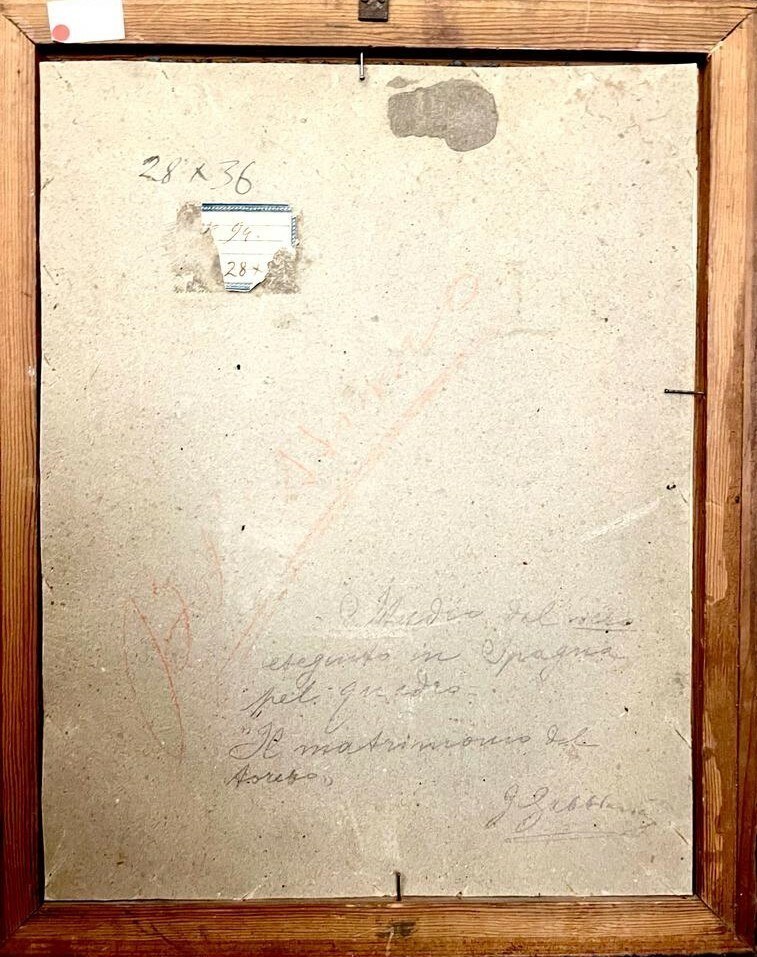 28 x 36
94.
28 x
Studio del vero
eseguito in Spagna
pel quadro
"Il matrimonio del
Torero"